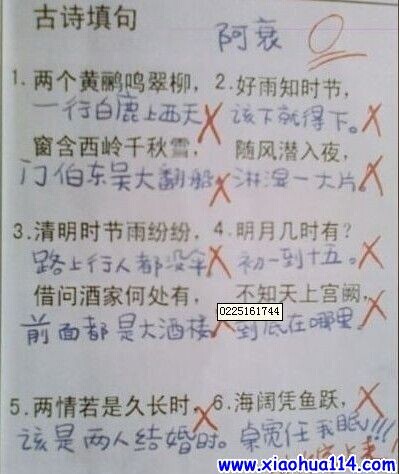 古诗填句
阿衰 0
1. 两个黄鹂鸣翠柳，2. 好雨知时节，
一行白鹿上西天 该下就得下。
窗含西岭千秋雪， 随风潜入夜，
门伯东吴大翻船 淋湿一大片。
3. 清明时节雨纷纷，4. 明月几时有？
路上行人都没伞 初一到十五。
借问酒家何处有， 不知天上宫阙，
0225161744
前面都是大酒楼 到底在哪里。
5. 两情若是久长时，6. 海阔凭鱼跃，
该是两人结婚时。桌宽任我眠!!!
www.xiaohua114.com